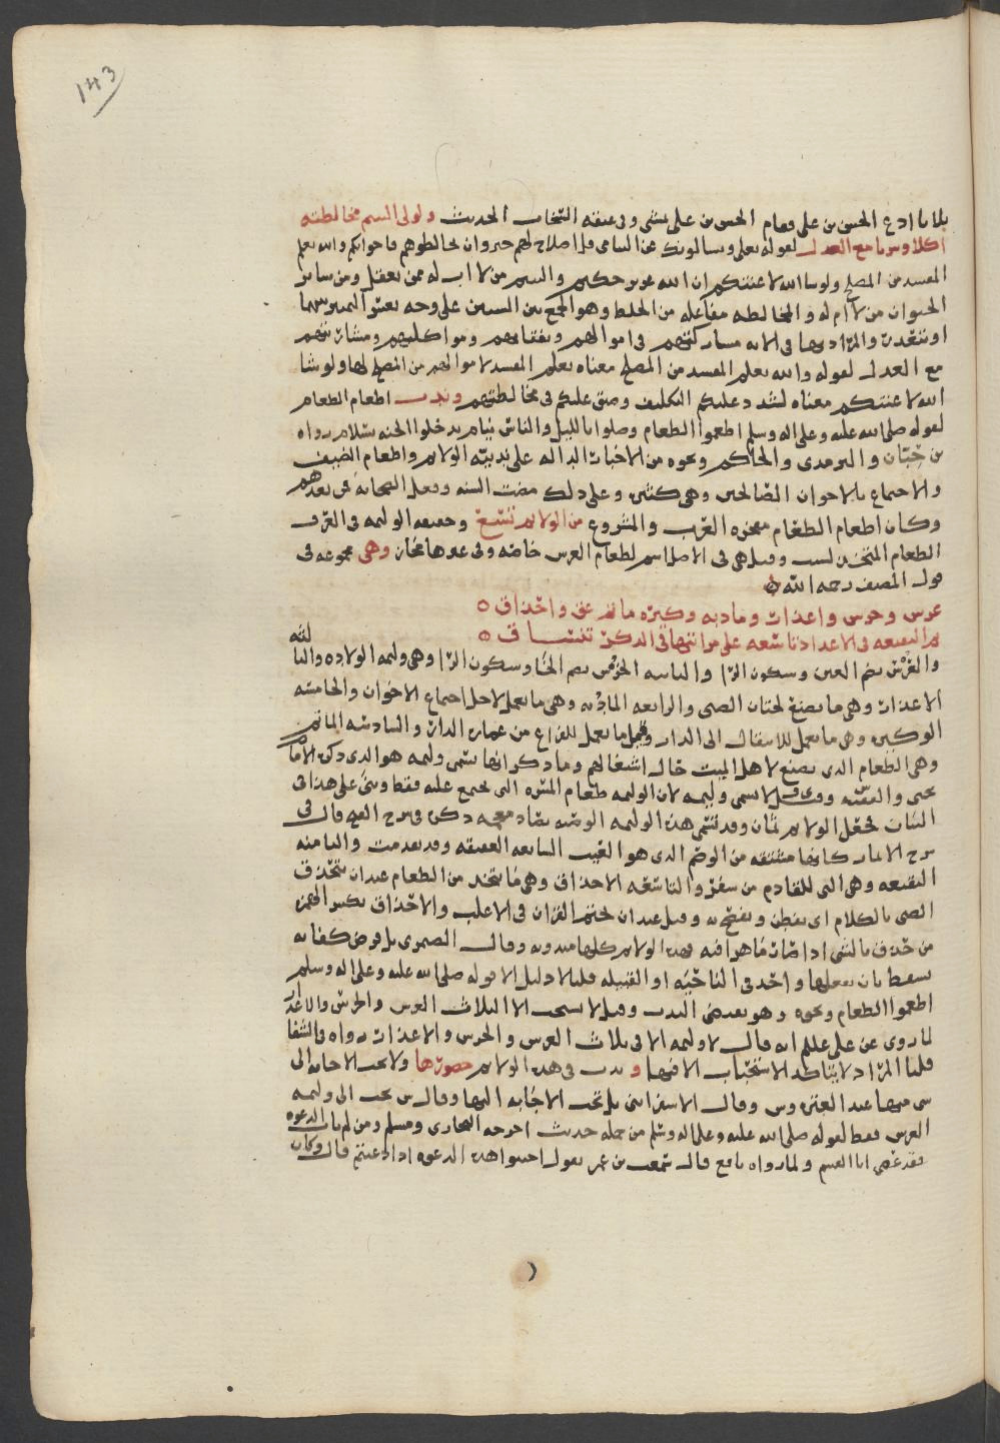 143
ادع الحسن بن على فقام الحسن بن على يمشى وفى عنقه السخاب الحديث ولولى اليتيم مخالطته
اكلا وشربا مع العدل لقوله تعلى ويسالونك عن اليتامى قل اصلاح لهم خير وان تخالطوهم فاخوانكم والله يعلم
المفسد من المصلح ولو شا الله لاعنتكم ان الله عزيز حكيم واليتيم من لا اب له ممن يعقل ومن سائر
الحيوان من لا ام له والمخالطه مفاعله من الخلط وهو الجمع بين الشيئين على وجه يعسر التمييز بينهما
او يتعذر والمراد بها فى الايه مشاركتهم فى اموالهم ونفقاتهم ومواكلتهم ومشاربتهم
مع العدل لقوله والله يعلم المفسد من المصلح معناه يعلم المفسد لاموالهم من المصلح لها ولو شا
الله لاعنتكم معناه لشدد عليكم التكليف وضيق عليكم فى مخالطتهم وندب اطعام الطعام
لقوله صلى الله عليه وعلى اله وسلم اطعموا الطعام وصلوا بالليل والناس نيام تدخلوا الجنه بسلام رواه
بن حبان والترمذى والحاكم ونحوه من الاخبار الداله على ندبيه الولائم واطعام الضيف
والاجتماع بالاخوان الصالحين وهى كثيره وعلى ذلك مضت السنه وفعل الصحابه فمن بعدهم
وكان اطعام الطعام مفخره العرب والمشروع من الولائم تسع وحقيقه الوليمه فى العرف
الطعام المتخذ لسبب وقيل هى فى الاصل اسم لطعام العرس خاصه وفى غيرها مجاز وهى مجموعه فى
قول المصنف رحمه الله
عرس وخرس واعذار ومادبه وكيره ماتم عق واحذاق
ثم النقيعه فى الاعداد تاسعه على مراتبها فى الذكر تنساق
والعرس بضم العين وسكون الرا والثانيه الخرس بضم الخا وسكون الرا وهى وليمه الولاده والثالثه
الاعذار وهى ما يصنع لختان الصبى والرابعه المادبه وهى ما يعمل لاجل اجتماع الاخوان والخامسه
الوكيره وهى ما يعمل للانتقال الى الدار وقيل ما يعمل للفراغ من عماره الدار والسادسه الماتم
وهى الطعام الذى يصنع لاهل الميت حال اشتغالهم وما ذكر انها تسمى وليمه هو الذى ذكره الاما
يحيى والفقيه وقيل لا يسمى وليمه لان الوليمه طعام المسره التى يجتمع عليه فقط ومشى على هذا فى
البيان فجعل الولائم ثمان وقد تسمى هذه الوليمه الوضيمه بضاد معجمه ذكره فى شرح الفتح قال فى
شرح الاثمار كانها مشتقه من الوضم الذى هو العيب السابعه العقيقه وقد تقدمت والثامنه
النقيعه وهى التى للقادم من سفر والتاسعه الاحذاق وهى ما يتخذ من الطعام عند ان يتحذق
الصبى بالكلام اى يفطن ويفصح به وقيل عند ان يختم القران فى الاغلب والاحذاق بكسر الهمزه
من حذق بالشى اذا صار ماهرا فيه فهذه الولائم كلها مندوبه وقال الصيمرى بل فرض كفايه
يسقط بان يفعلها واحد فى الناحيه او القبيله قلنا لا دليل الا قوله صلى الله عليه وعلى اله وسلم
اطعموا الطعام ونحوه وهو يقتضى الندب وقيل لا يستحب الا الثلاث العرس والخرس والاعذار
لما روى عن على عليلم انه قال لا وليمه الا فى ثلاث العرس والخرس والاعذار رواه فى الشفا
قلنا المراد لا يتاكد الاستحباب الا فيها وندب فى هذه الولائم حضورها ولا تجب الاجابه الى
شى منها عند العتره وش وقال الاسفرائنى بل تجب الاجابه اليها وقال ش تجب الى وليمه
العرس فقط لقوله صلى الله عليه وعلى اله وسلم من جمله حديث اخرجه البخارى ومسلم ومن لم يات الدعوه
فقد عصى ابا القسم ولما رواه نافع قال سمعت بن عمر يقول اجيبوا هذه الدعوه اذا دعيتم قال وكان